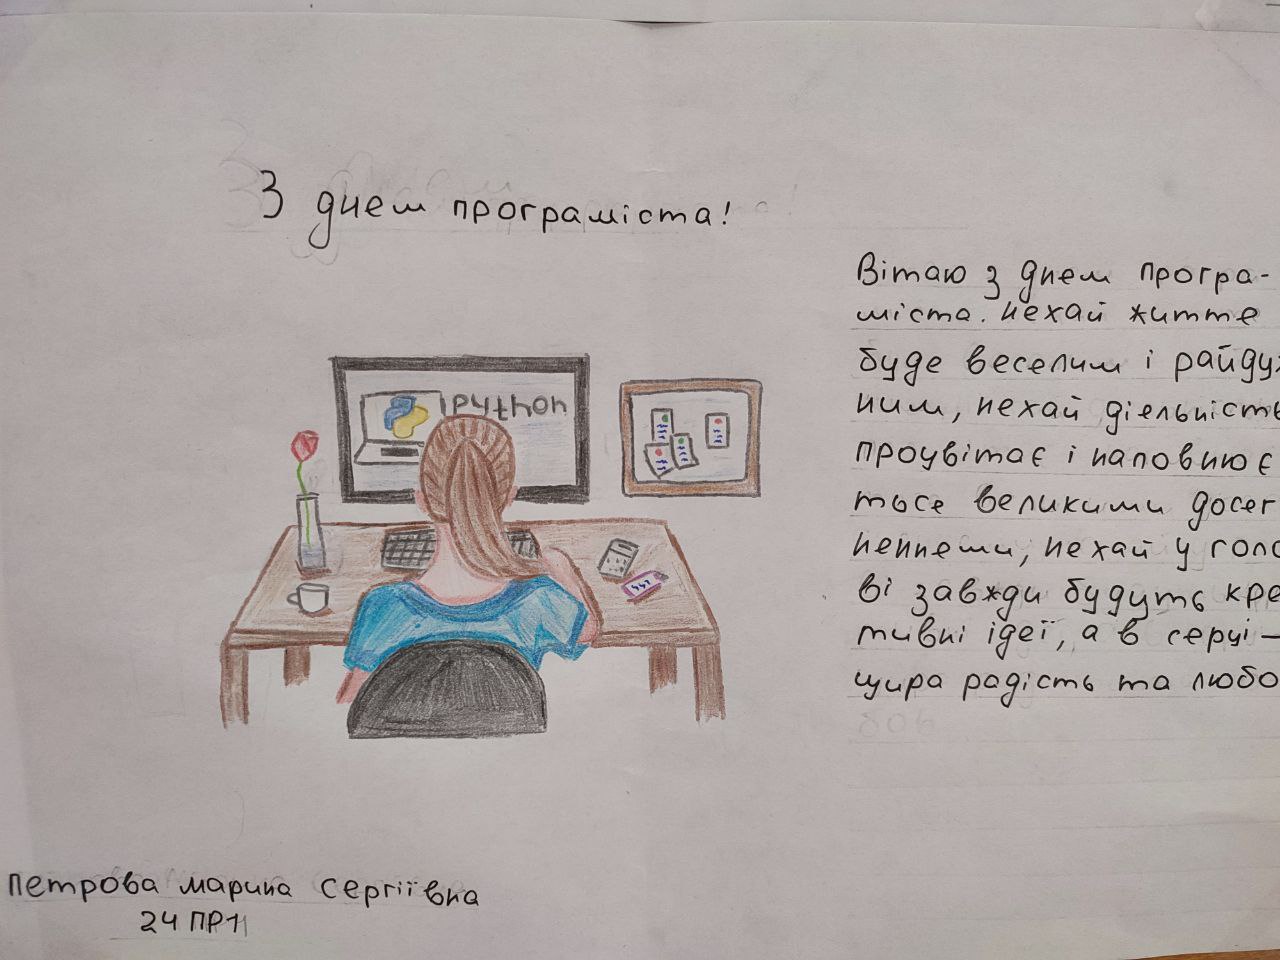 З днем програміста!
Вітаю з днем програ-
міста. нехай життє
буде веселим і райдуж
ним, нехай діельність
процвітає і наповнює
тьсе великими досег
неннеми, нехай у голо
ві завжди будуть кре
тивні ідеї, а в серці —
щира радість та любо
python
петрова марина Сергіївна
24 ПР1